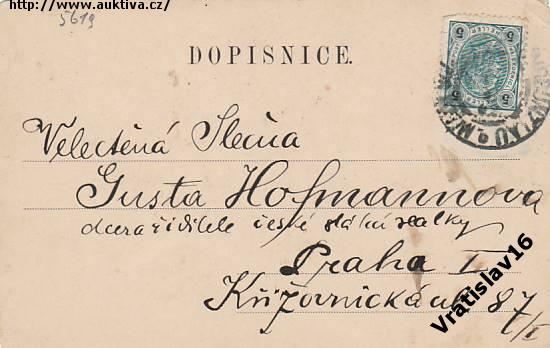 http://www.auktiva.cz/
5619
DOPISNICE.
5 HELLER 5
5 5
Velectěná Slečna
Gusta Hofmannova
dcera řiditele české státní realky
Praha I
Křižovnická ul 87
Vratislav16